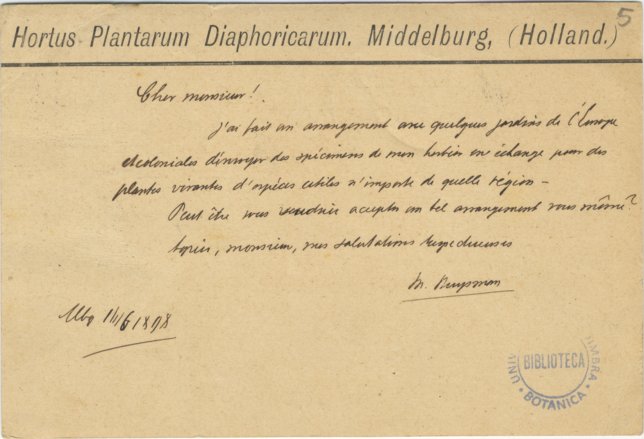 5
Hortus Plantarum Diaphoricarum. Middelburg, (Holland.)
Cher monsieur!
J'ai fait un arrangement avec quelques jardins de l'Europe
et coloniales d'envoyer des spécimens de mon herbier en échange pour des
plantes vivantes d'espèces utiles n'importe de quelle région –
Peut être vous voudriez accepter un tel arrangement vous même?
monsieur, mes salutations respectueuses
M. Buysman
Mbg 1898
BIBLIOTECA
BOTANICA